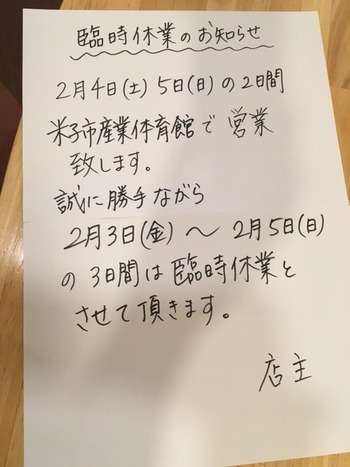 臨時休業のお知らせ
2月4日(土)5日(日)の2日間
米子市産業体育館で営業
致します。
誠に勝手ながら
2月3日(金)~2月5日(日)
の3日間は臨時休業と
させて頂きます。
店主